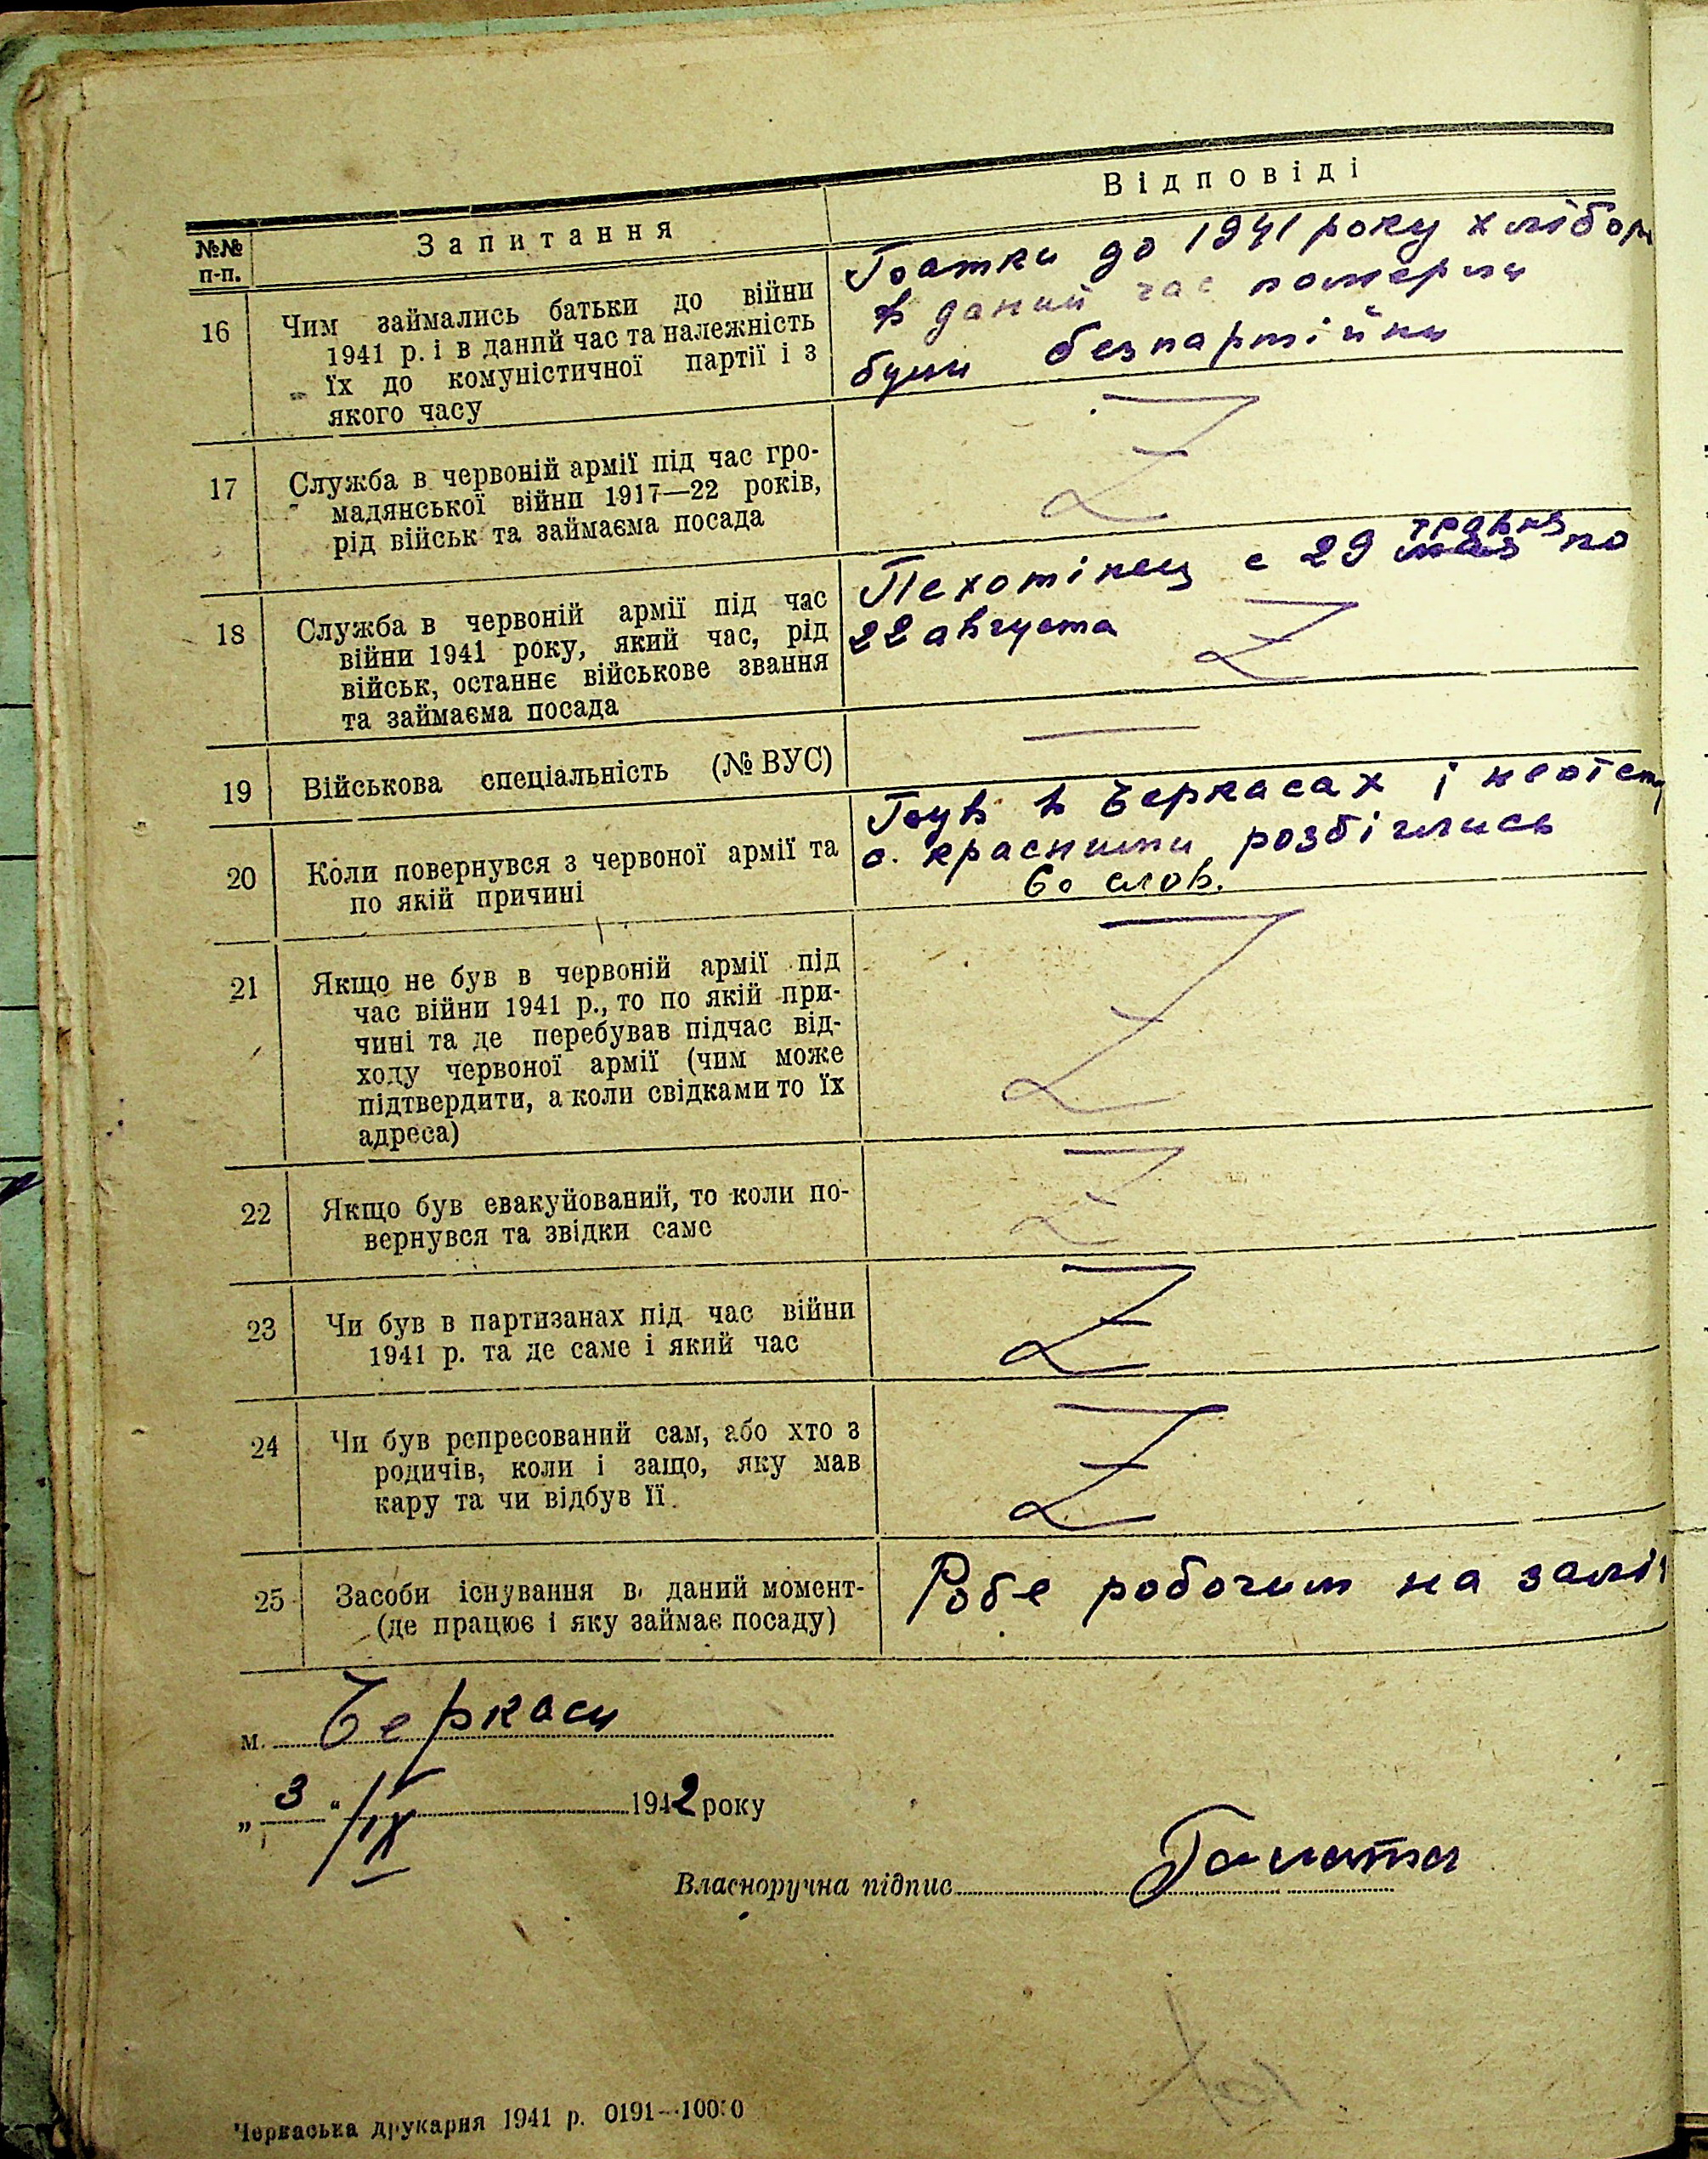 №№ п-п.
Запитання
Відповіді
16
Чим займались батьки до війни
1941 р. і в даний час та належність
їх до комуністичної партії і з
якого часу
Батки до 1941 року хлібор
в даний час померли
були безпартійни
17
Служба в червоній армії під час гро-
мадянської війни 1917—22 років,
рід військ та займаєма посада
Z
18
Служба в червоній армії під час
війни 1941 року, який час, рід
військ, останнє військове звання
та займаєма посада
травня
Пехотінец с 29 мая по
22 августа
Z
19
Військова спеціальність (№ ВУС)
—
20
Коли повернувся з червоної армії та
по якій причині
Був в Черкасах і
с. красними розбіглись
Со слов.
21
Якщо не був в червоній армії під
час війни 1941 р., то по якій при-
чині та де перебував підчас від-
ходу червоної армії (чим може
підтвердити, а коли свідками то їх
адреса)
Z
22
Якщо був евакуйований, то коли по-
вернувся та звідки саме
Z
23
Чи був в партизанах під час війни
1941 р. та де саме і який час
Z
24
Чи був репресований сам, або хто з
родичів, коли і защо, яку мав
кару та чи відбув її.
Z
25
Засоби існування в даний момент-
(де працює і яку займає посаду)
Робе робочим на залі
м. Черкаси
„ 3 “ /IX 1942 року
Власноручна підпис
Черкаська друкарня 1941 р. 0191—10000